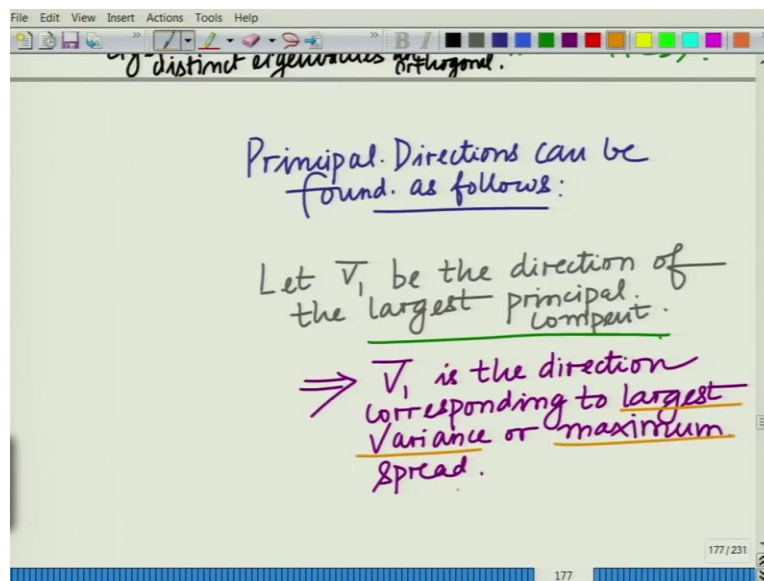 File Edit View Insert Actions Tools Help
B I
distinct eigenvalues are orthogonal.
Principal. Directions can be
found. as follows:
Let V̅₁ be the direction of
the largest principal.
compent.
⇒ V̅₁ is the direction
corresponding to largest
Variance or maximum
spread.
177/231
177